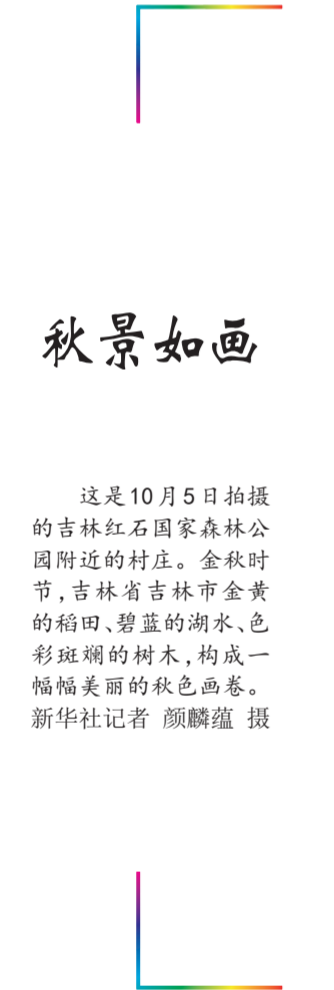 秋景如画
这是10月5日拍摄
的吉林红石国家森林公
园附近的村庄。金秋时
节，吉林省吉林市金黄
的稻田、碧蓝的湖水、色
彩斑斓的树木，构成一
幅幅美丽的秋色画卷。
新华社记者 颜麟蕴 摄